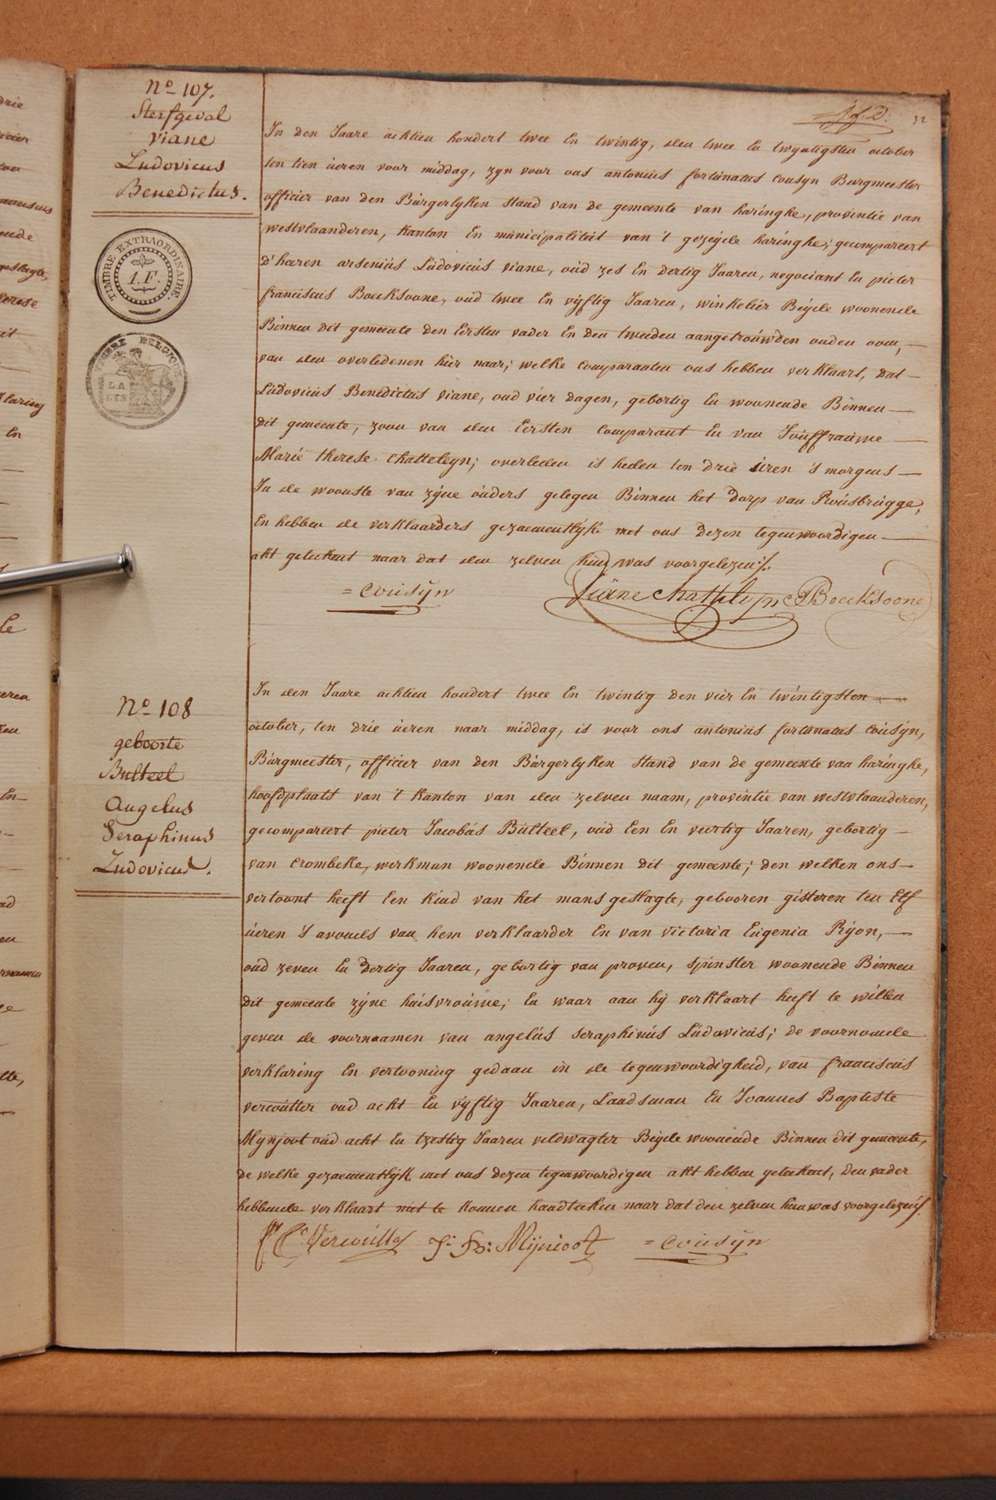 32
No 107.
Sterfgeval
Viane
Ludovicus
Benedictus.
TIMBRE EXTRAORDINAIRE.
1.F.
In den Jaare achtien hondert twee En twintig, den twee En twyntigsten october
ten tien ùeren voor middag, zyn voor ons antonius fortunatus cousyn Burgmeester
officier van den Bùrgerlyken staad van de gemeente van haringhe, provintie van
westvlaanderen, Kanton En municipaliteit van 't gezegde haringhe; gecompareert
d'heeren arsenius Lùdovicùs viane, oùd zes En dertig Jaaren, negociant En pieter
franciscùs Boecksoone, oùd twee En vijftig Jaaren, winkelier Beijde woonende
Binnen dit gemeente den Eersten vader En den tweeden aangetroùwden ouden oom,
van den overledenen hier naar; welke comparanten ons hebben verklaart, dat
Lùdovicùs Benedictùs viane, oùd vier dagen, gebortig En woonende Binnen
dit gemeente, zoon van den Eersten comparant En van Joùffraùwe
Marie therese chatteleyn; overleden is heden ten drie ùren 's morgens
In de wooneste van zÿne oùders gelegen Binnen het Dorp van Roùsbrùgge,
En hebben de verklaarders gezaementlÿk met ons Dezen tegenwoordigen
akt geteekent naar dat den zelven hun was voorgelezen/.
= Cousÿn
Viane chattelyn PBoecksoone
No 108
geboorte
Bulteel
Angelus
Seraphinus
Ludovicus.
In den Jaare achtien hondert twee En twintig den vier En twintigsten
october, ten drie ùeren naar middag, is voor ons antonius fortunatus coùsÿn,
Bùrgmeester, officier van den Bùrgerlyken stand van de gemeente van haringhe,
hoofdplaats van 't Kanton van den zelven naam, provintie van westvlaanderen,
gecompareert pieter Jacobùs Bùlteel, oùd Een En veertig Jaaren, gebortig
van crombeke, werkman woonende Binnen dit gemeente; den welken ons
vertoont heeft Een Kind van het mans geslagte, gebooren gisteren ten Elf
ùeren 's avonds van hem verklaarder En van victoria Eugenia Rÿon,
oud zeven En Dertig Jaaren, gebortig van proven, spinster woonende Binnen
dit gemeente zÿne hùisvroùwe; En waar aan hij verklaart heeft te willen
geven de voornaamen van angelùs seraphinùs Lùdovicùs; de voornoemde
verklaring En vertooning gedaan in de tegenwoordigheid, van franciscùs
vercoùtter oùd acht En vÿftig Jaaren, Landsman En Joannes Baptiste
Mynjoot oùd acht En tzestig Jaaren veldwagter Beijde woonende Binnen dit gemeente,
de welke gezaementlÿk met ons dezen tegenwoordigen akt hebben geteekent, Den vader
hebbende verklaart niet te Konnen handteeken naar dat den zelven hun was voorgelezen/.
J: B: Mijnioot
= Cousijn